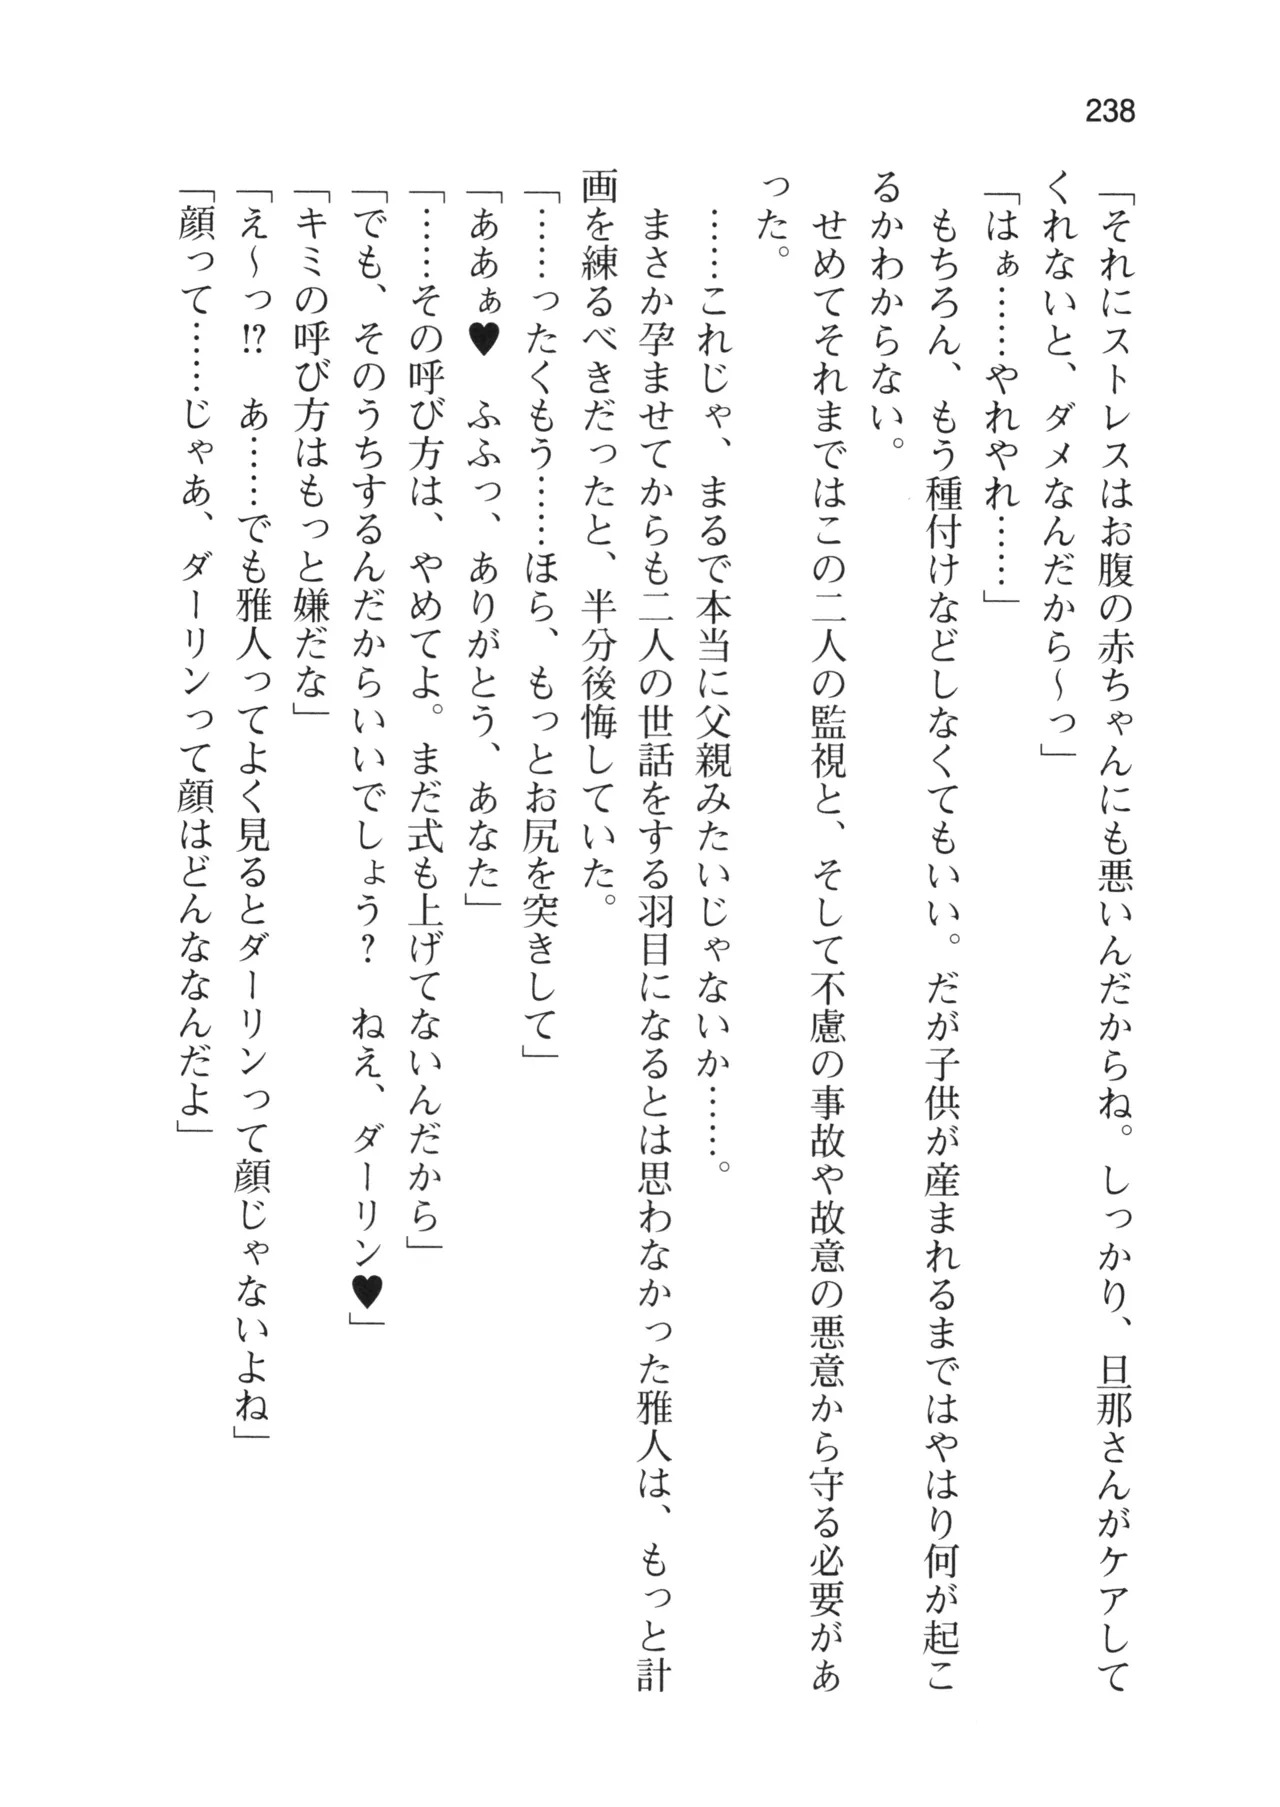 238
「それにストレスはお腹の赤ちゃんにも悪いんだからね。しっかり、旦那さんがケアして
くれないと、ダメなんだから～っ」
「はぁ……やれやれ……」
　もちろん、もう種付けなどしなくてもいい。だが子供が産まれるまではやはり何が起こ
るかわからない。
　せめてそれまではこの二人の監視と、そして不慮の事故や故意の悪意から守る必要があ
った。
　……これじゃ、まるで本当に父親みたいじゃないか……。
　まさか孕ませてからも二人の世話をする羽目になるとは思わなかった雅人は、もっと計
画を練るべきだったと、半分後悔していた。
「……ったくもう……ほら、もっとお尻を突きして」
「ああぁ♥　ふふっ、ありがとう、あなた」
「……その呼び方は、やめてよ。まだ式も上げてないんだから」
「でも、そのうちするんだからいいでしょう？　ねえ、ダーリン♥」
「キミの呼び方はもっと嫌だな」
「え～っ!?　あ……でも雅人ってよく見るとダーリンって顔じゃないよね」
「顔って……じゃあ、ダーリンって顔はどんななんだよ」